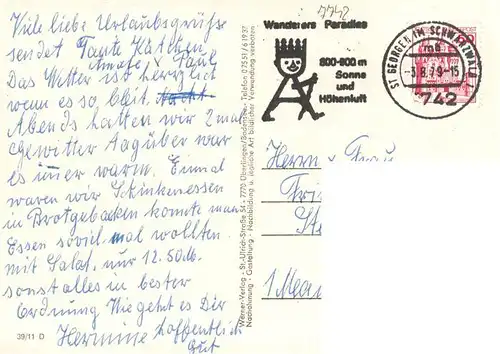 Viele liebe Urlaubsgrüße
sendet Tante Kätchen
Das Wetter ist herrlich
wenn es so bleibt.
Abends hatten wir 2 mal
Gewitter Tagüber war
es immer warm. Einmal
waren wir Schinkenessen
in Brotgebacken konnte man
Essen soviel mal wollten.
mit Salat, nur 12.50 M.
sonst alles in bester
Ordnung Wie geht es Dir
Hermine hoffentlich
Gut
39/11 D
Werner-Verlag · St.-Ulrich-Straße 54 · 7770 Überlingen/Bodensee · Telefon 07551/61937
Nachahmung · Gestaltung · Nachbildung u. jegliche Art bildlicher Verwendung verboten
7742
Wanderers Paradies
800-900 m
Sonne
und
Höhenluft
ST GEORGEN IM SCHWARZWALD
mb
-3.8.79-15
7742
Herrn u. Frau